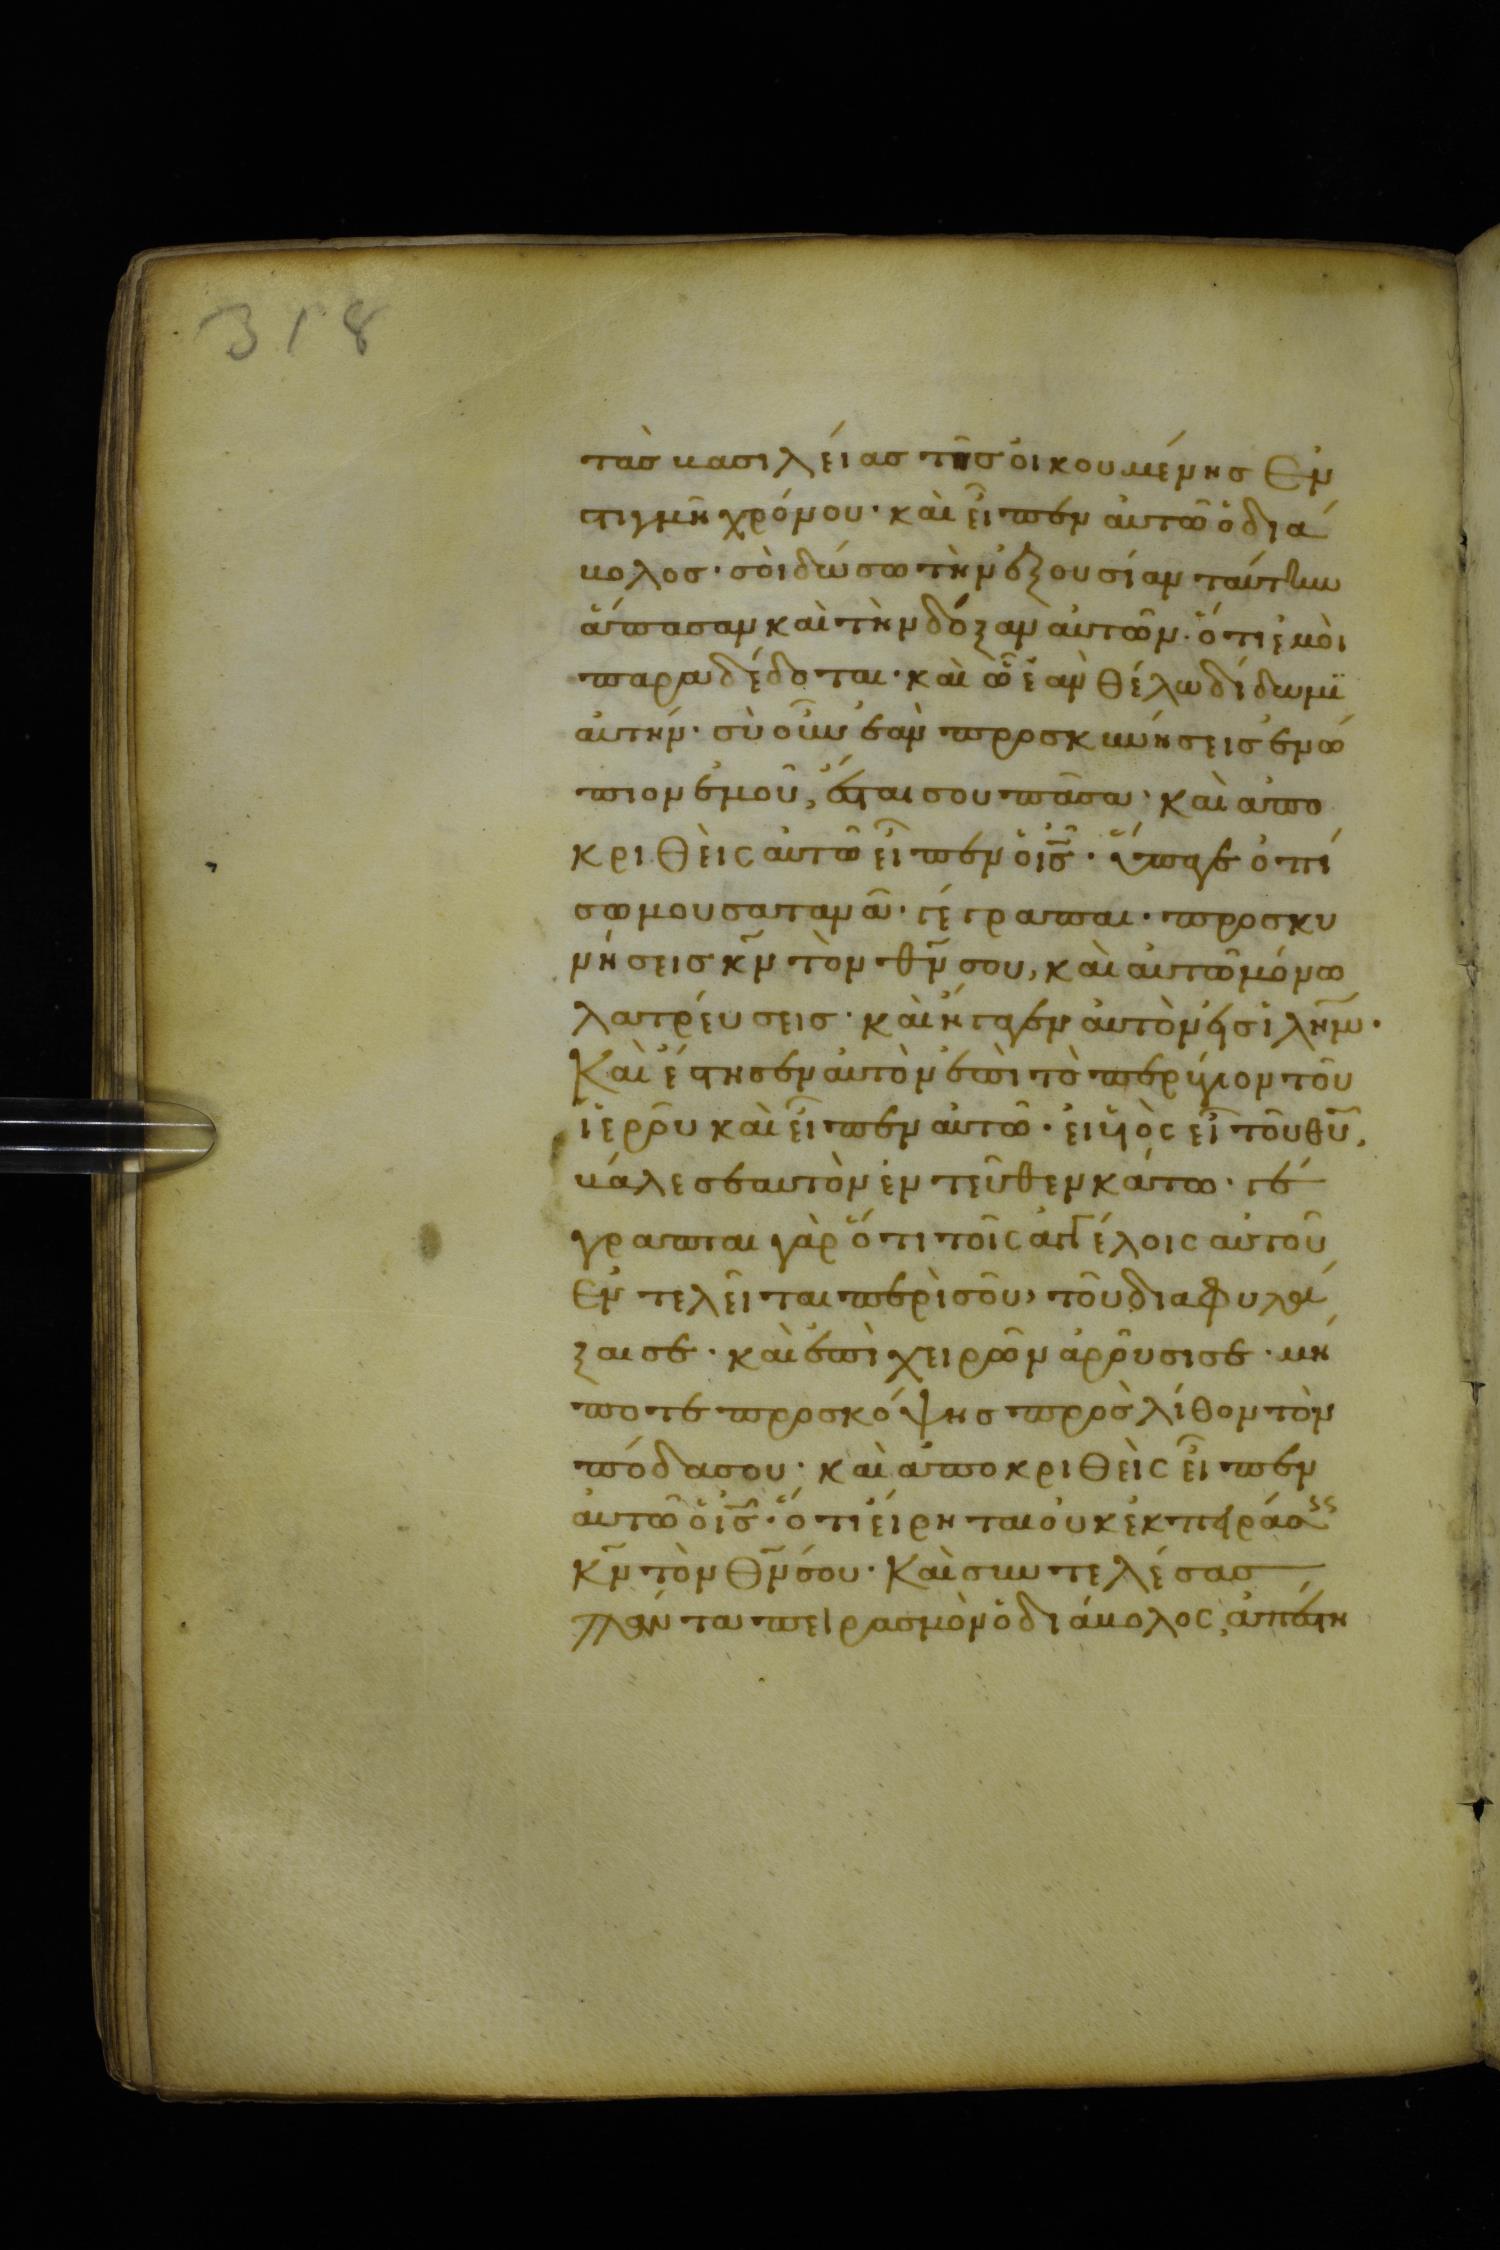 318
τὰς βασιλείας τῆς οἰκουμένης ἐν
στιγμῆ χρόνου· καὶ εἶπεν αὐτῶ ὁ διά
βολος· σοὶ δώσω τὴν ἐξουσίαν ταύτην
ἅπασαν καὶ τὴν δόξαν αὐτῶν· ὅτι ἐμοὶ
παραδέδοται· καὶ ὧ ἐὰν θέλω δίδωμϊ
αὐτήν· σὺ οὖν ἐὰν προσκυνήσεις ἐνώ
πιον ἐμοῦ, ἔσται σου πᾶσα· καὶ ἀπο
κριθεὶς αὐτῶ εἶπεν ὁ ις̅· ὕπαγε ὀπί
σω μου σατανᾶ· γέγραπται· προσκυ
νήσεις κν̅ τὸν θν̅ σου, καὶ αὐτῶ μόνω
λατρεύσεις· καὶ ἤγαγεν αὐτὸν εἰς ἱλημ̅·
Καὶ ἔστησεν αὐτὸν ἐπὶ τὸ πτερύγιον τοῦ
ἱεροῦ καὶ εἶπεν αὐτῶ· εἰ υἱὸς εἶ τοῦ θυ̅,
βάλε σεαυτὸν ἐντεῦθεν κάτω· γέ
γραπται γὰρ ὅτι τοῖς ἀγγέλοις αὐτοῦ
ἐντελεῖται περὶ σοῦ, τοῦ διαφυλά
ξαι σε· καὶ ἐπὶ χειρῶν ἀροῦσι σε· μή
ποτε προσκόψης πρὸς λίθον τὸν
πόδα σου· καὶ ἀποκριθεὶς εἶπεν
αὐτῶ ὁ ις̅· ὅτι εἴρηται οὐκ ἐκπειράσ
κν̅ τὸν θν̅ σου· Καὶ συντελέσας
πάντα πειρασμὸν ὁ διάβολος, ἀπέστη